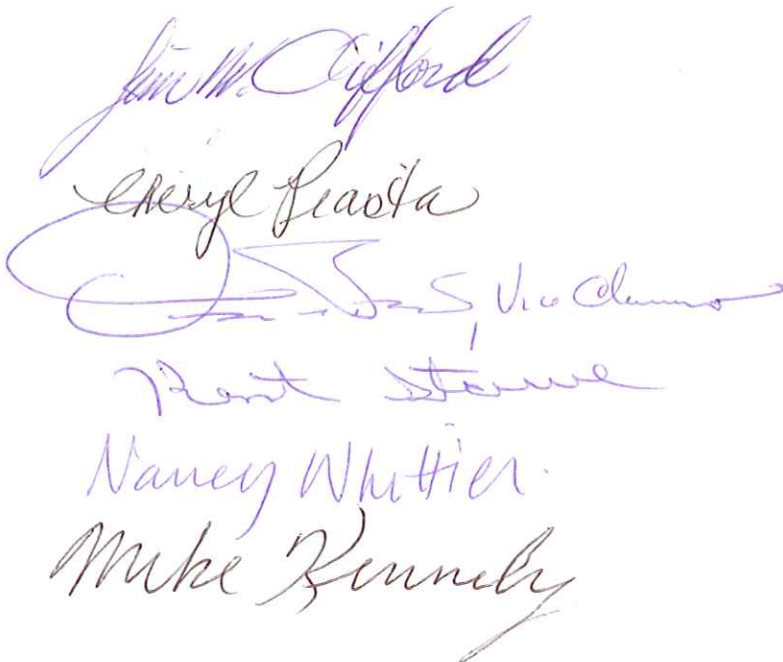 Jim M. Clifford
Cheryl
, Vice Chairman
Kent Stowe
Nancy Whittier
Mike Kennedy